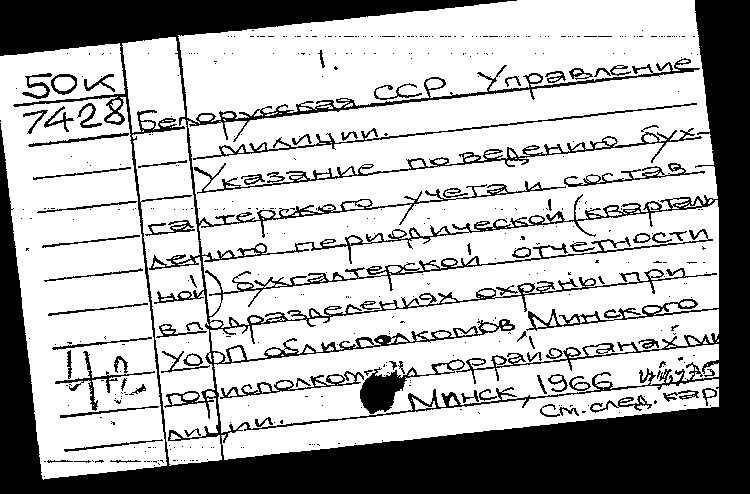 1.
50К
7428
Белорусская ССР. Управление
милиции.
Указание по ведению бух-
галтерского учета и состав-
лению периодической (кварталь
ной) бухгалтерской отчетности
в подразделениях охраны при
УООП облисполкомов, Минского
горисполкома и горрайорганах ми
лиции.
Минск, 1966
См. след. кар
4+2